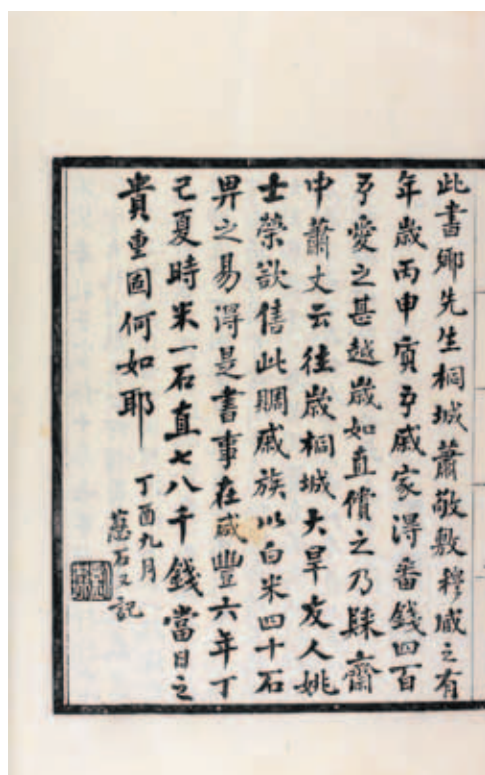 此書鄉先生桐城蕭敬敷穆藏之有
年歲丙申質予戚家得番錢四百
予愛之甚越歲如直償之乃歸齋
中蕭丈云往歲桐城大旱友人姚
士榮欲售此賙戚族以白米四十石
畀之易得是書事在咸豐六年丁
己夏時米一石直七八千錢當日之
貴重固何如耶
丁酉九月
蔥石又記